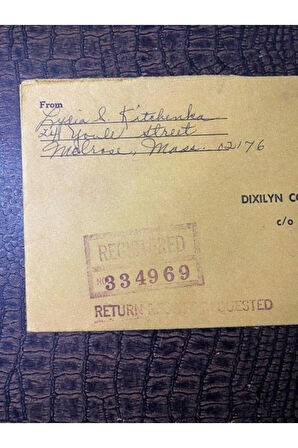 From
Lydia S. Kitchenka
24 Youle Street
Melrose, Mass. 02176
DIXILYN CO
c/o
REGISTERED
NO. 334969
RETURN REQUESTED